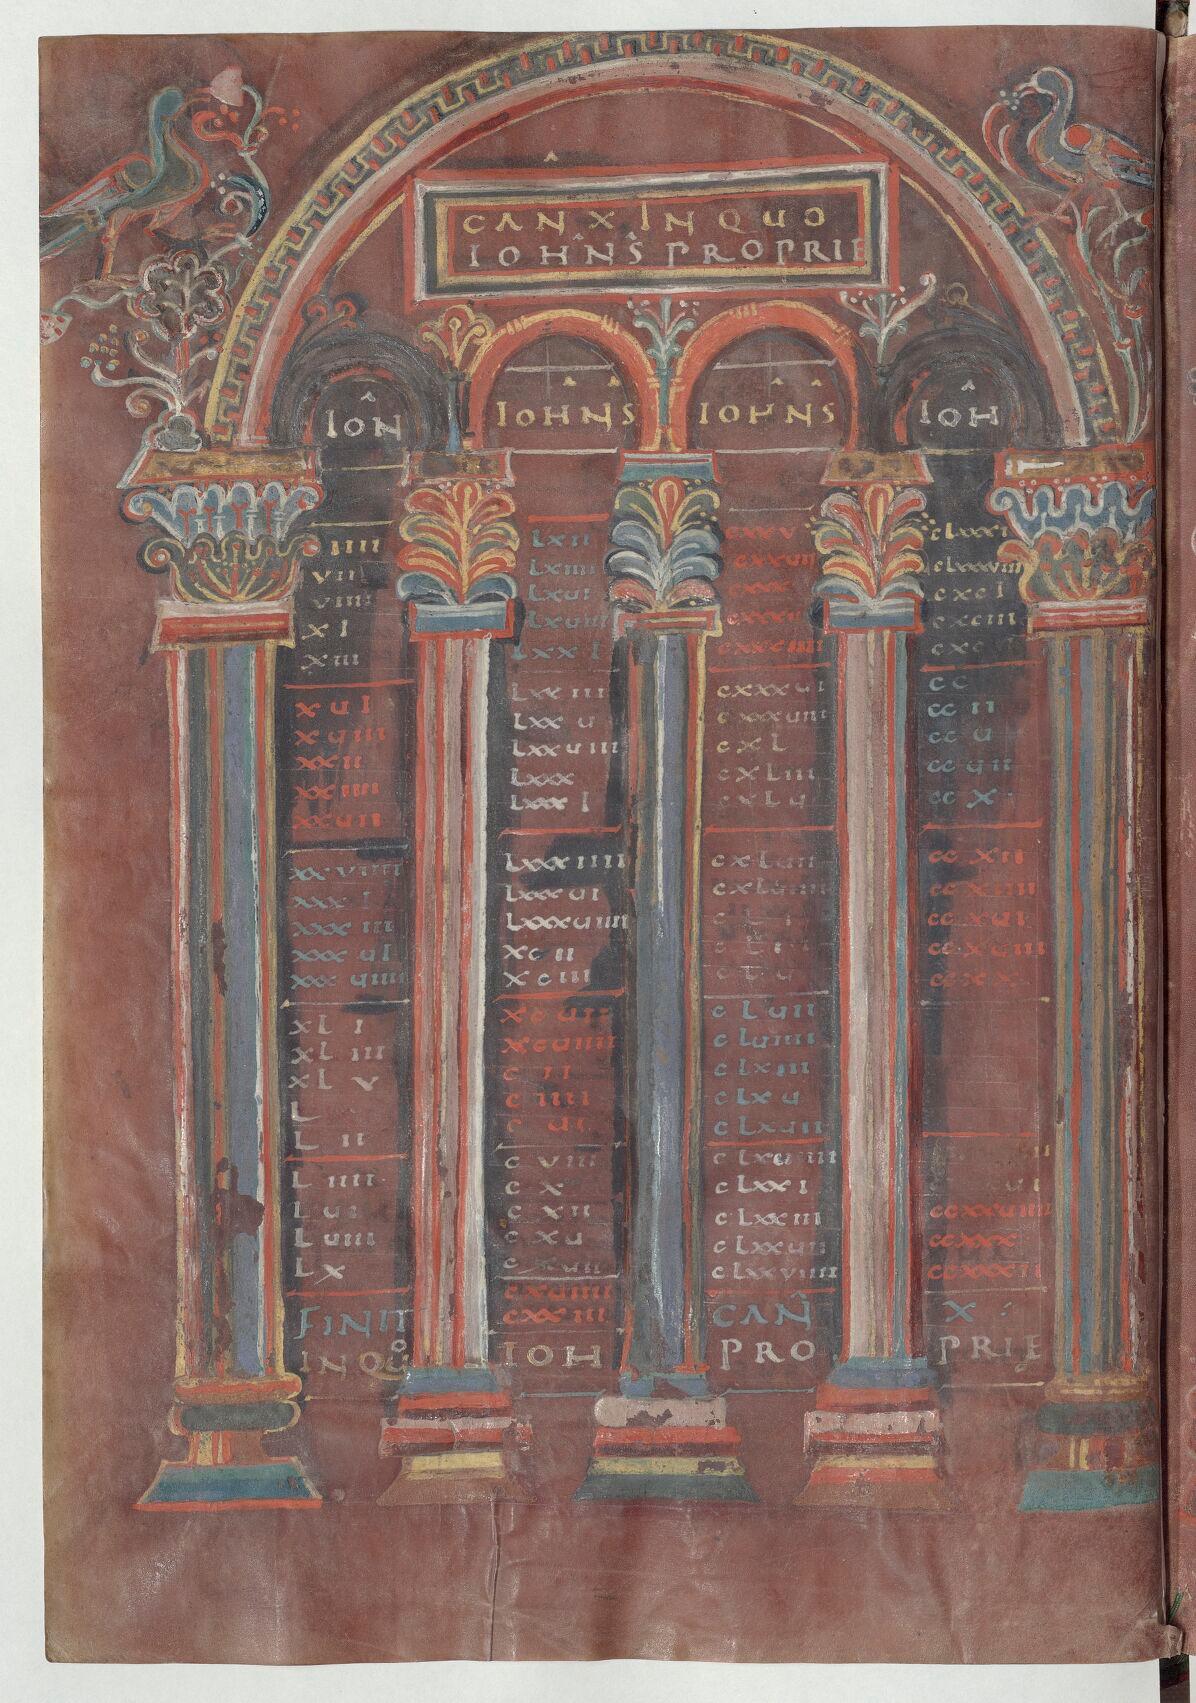 CAN X IN QUO
IOHNS PROPRIE
ION
IIII
VII
VIIII
XI
XIII
XUI
XUIII
XXII
XXIIII
XXUII
XXVIIII
XXXI
XXXIII
XXXUI
XXXUIIII
XLI
XLIII
XLV
L
LII
LIIII
LUI
LUIII
LX
FINIT
IN QO
IOHNS
LXII
LXIIII
LXUI
LXUIII
LXXI
LXXIII
LXXU
LXXUIII
LXXX
LXXXI
LXXXIIII
LXXXUI
LXXXUIIII
XCII
XCIII
XCUII
XCUIIII
CII
CIIII
CUI
CVIII
CX
CXII
CXU
CXUII
CXUIIII
CXXIII
IOH
IOHNS
CXXV
CXXUII
CXXX
CXXXIIII
CXXXUI
CXXXUIIII
CXL
CXLIII
CXLU
CXLUII
CXLUIIII
CLUII
CLUIIII
CLXIII
CLXU
CLXUII
CLXUIIII
CLXXI
CLXXIII
CLXXUII
CLXXVIIII
CAN
PRO
IOH
CLXXXVIIII
CXCI
CXCIII
CC
CCII
CCU
CCUII
CCX
CCXII
CCXIIII
CCXUI
CCXUIII
CCXX
CCXXUIIII
CCXXX
CCXXXII
X :
PRIE